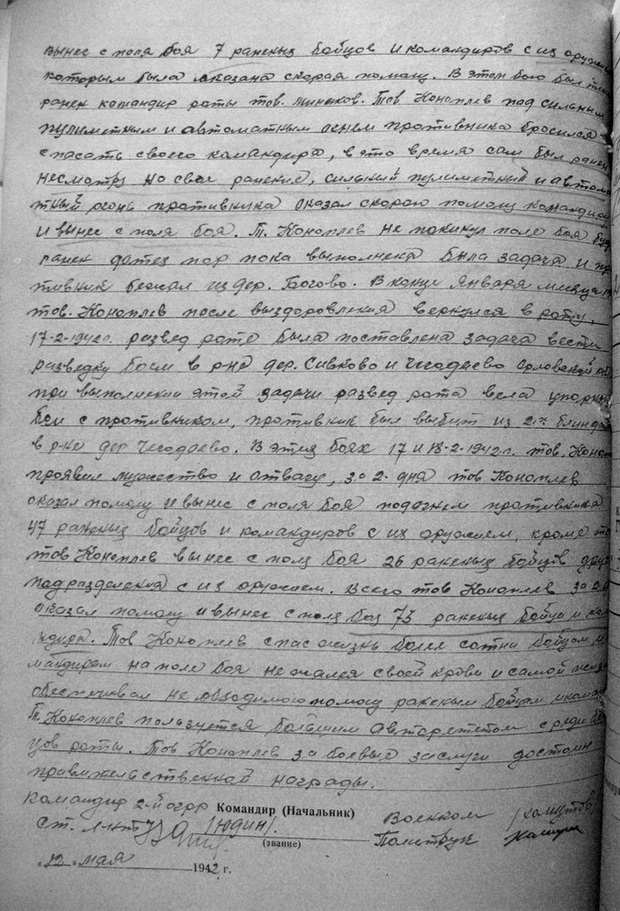 вынес с поля боя 7 раненых бойцов и командиров с их оружием
которым была оказана скорая помощ. В этом бою был
ранен командир роты тов. Минаков. Тов Коноплев под сильным
пулиметным и автоматным огнем противника бросился
спасать своего командира, в это время сам был ранен
несмотря на свое ранение, сильный пулиметный и автома
тный огонь противника оказал скорою помощ командиру
и вынес с поля боя. Т. Коноплев не покинул поле боя буд
ранен до тех пор пока выполнена была задача и про
тивник бежал из дер. Богово. В конце Января месяца
тов. Коноплев после выздоровления вернулся в роту,
17-2-1942г. развед роте была поставлена задача вести
разведку боем в р-не дер. Сивково и Чегодаево Орловской
при выполнении этой задачи развед рота вела упорны
бои с противником, противник был выбит из 2х блинда
в р-не дер Чегодаево. В этих боях 17 и 18-2-1942г. тов. Коноп
проявил мужество и отвагу, за 2-дня тов Коноплев
оказал помощ и вынес с поля боя под огнем противника
47 раненых бойцов и командиров с их оружием, кроме то
тов Коноплев вынес с поля боя 26 раненых бойцов друг
подразделения с их оружием. Всего тов Коноплев за
оказал помощ и вынес с поля боя 73 раненых бойца и ком
андира. Тов Коноплев спас жизнь более сотни бойцам и
мандирам на поле боя не жалея своей крови и самой жизн
обеспечивал необходимою помощ раненым бойцам и коман
Т. Коноплев пользуется большим авторететом среди
цов роты. Тов Коноплев за боевые заслуги достоин
правительственной награды.
Командир 2-й огрр Командир (Начальник) Военком /Хомутов
Ст. л-нт /Юдин/. Политрук
(звание)
12 мая 1942 г.